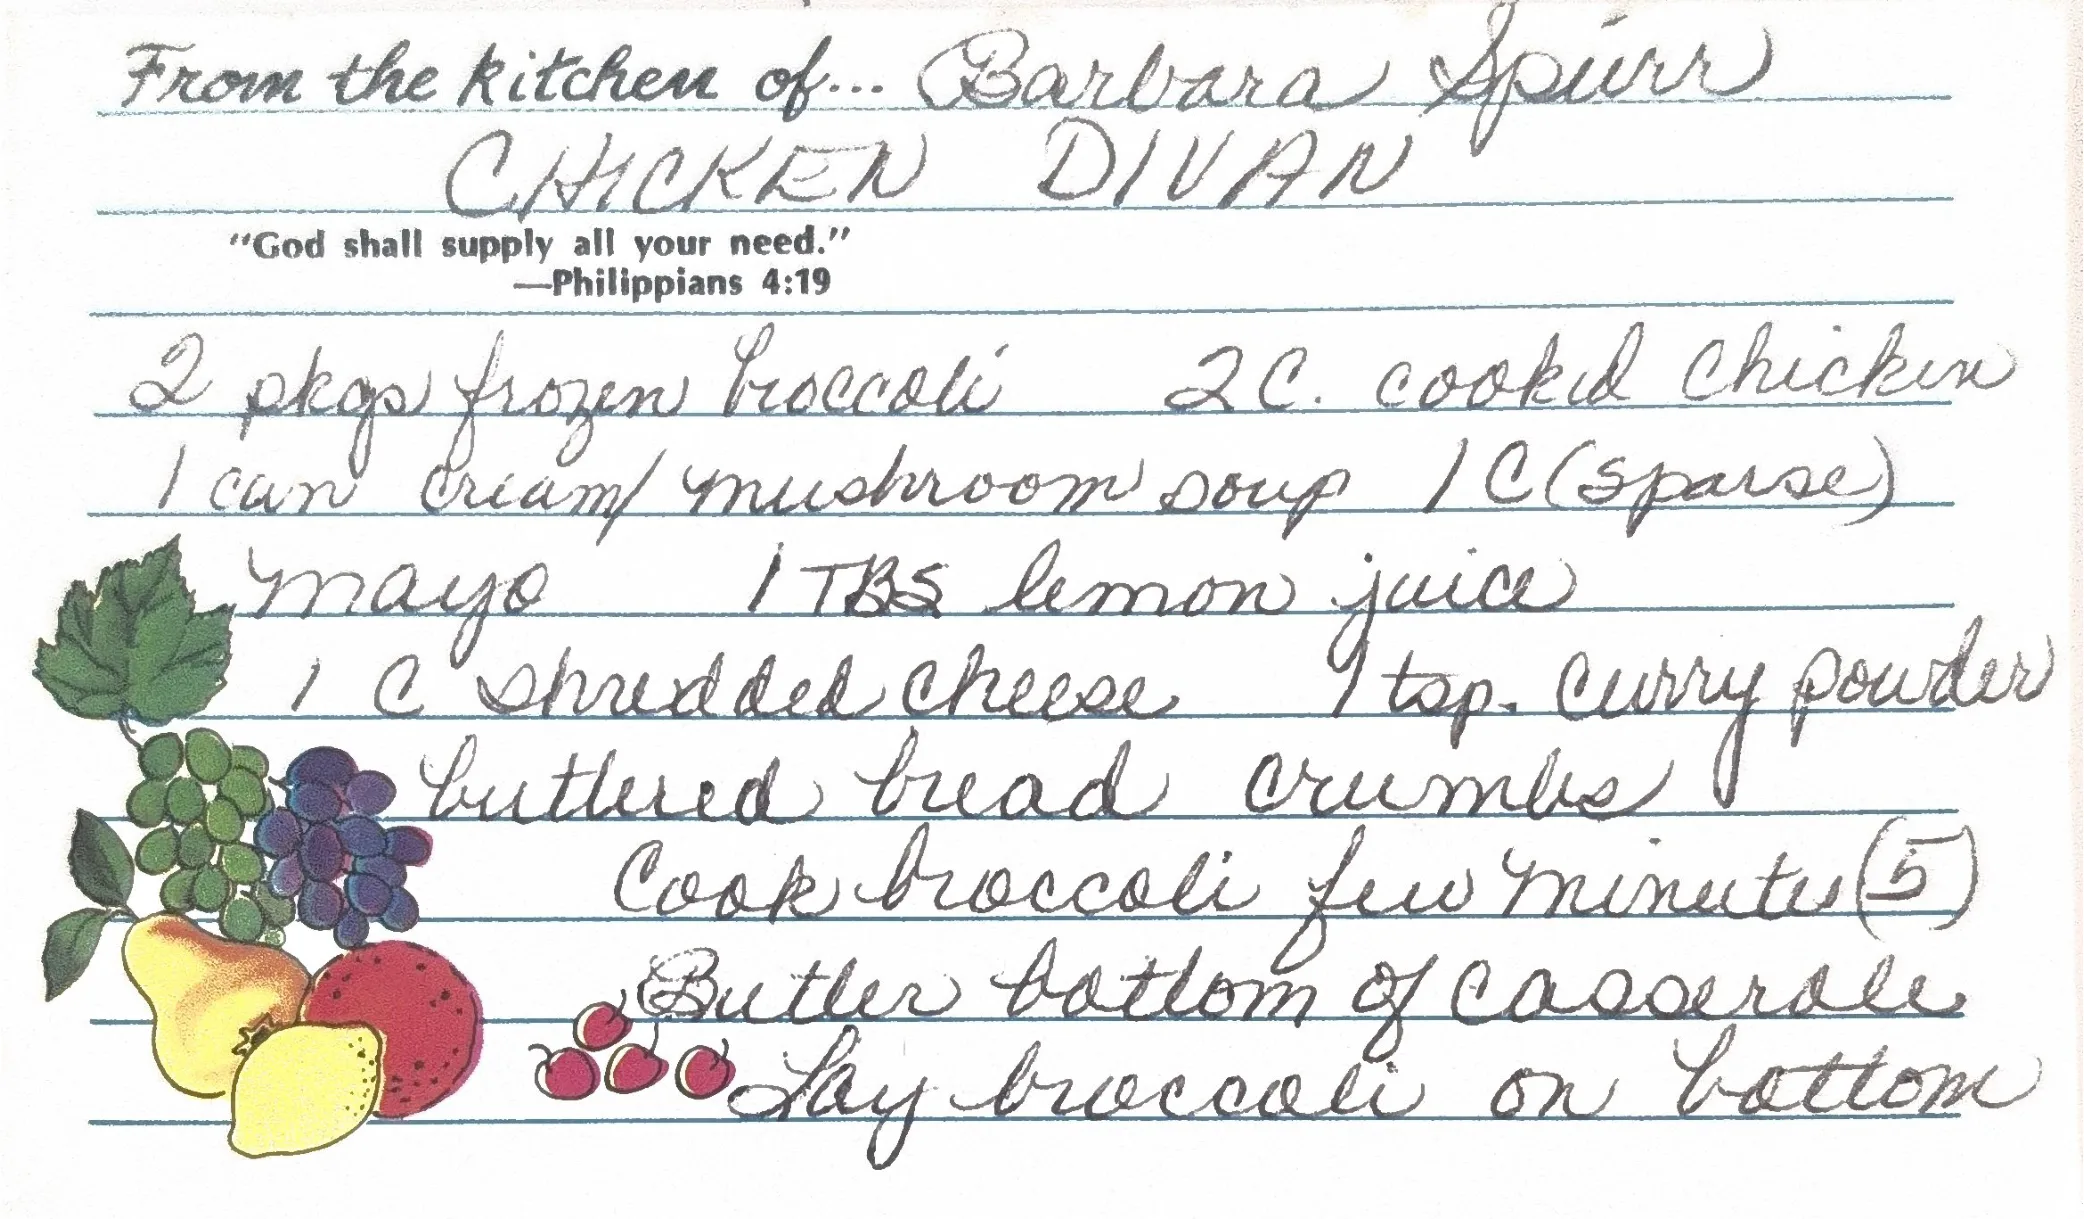 From the kitchen of... Barbara Spurr
CHICKEN DIVAN
"God shall supply all your need."
—Philippians 4:19
2 pkgs frozen broccoli 2 C. cooked chicken
1 can cream/mushroom soup 1 C (sparse)
mayo 1 TBS lemon juice
1 C shredded cheese 1 tsp. curry powder
buttered bread crumbs
Cook broccoli few minutes (5)
Butter bottom of casserole
Lay broccoli on bottom